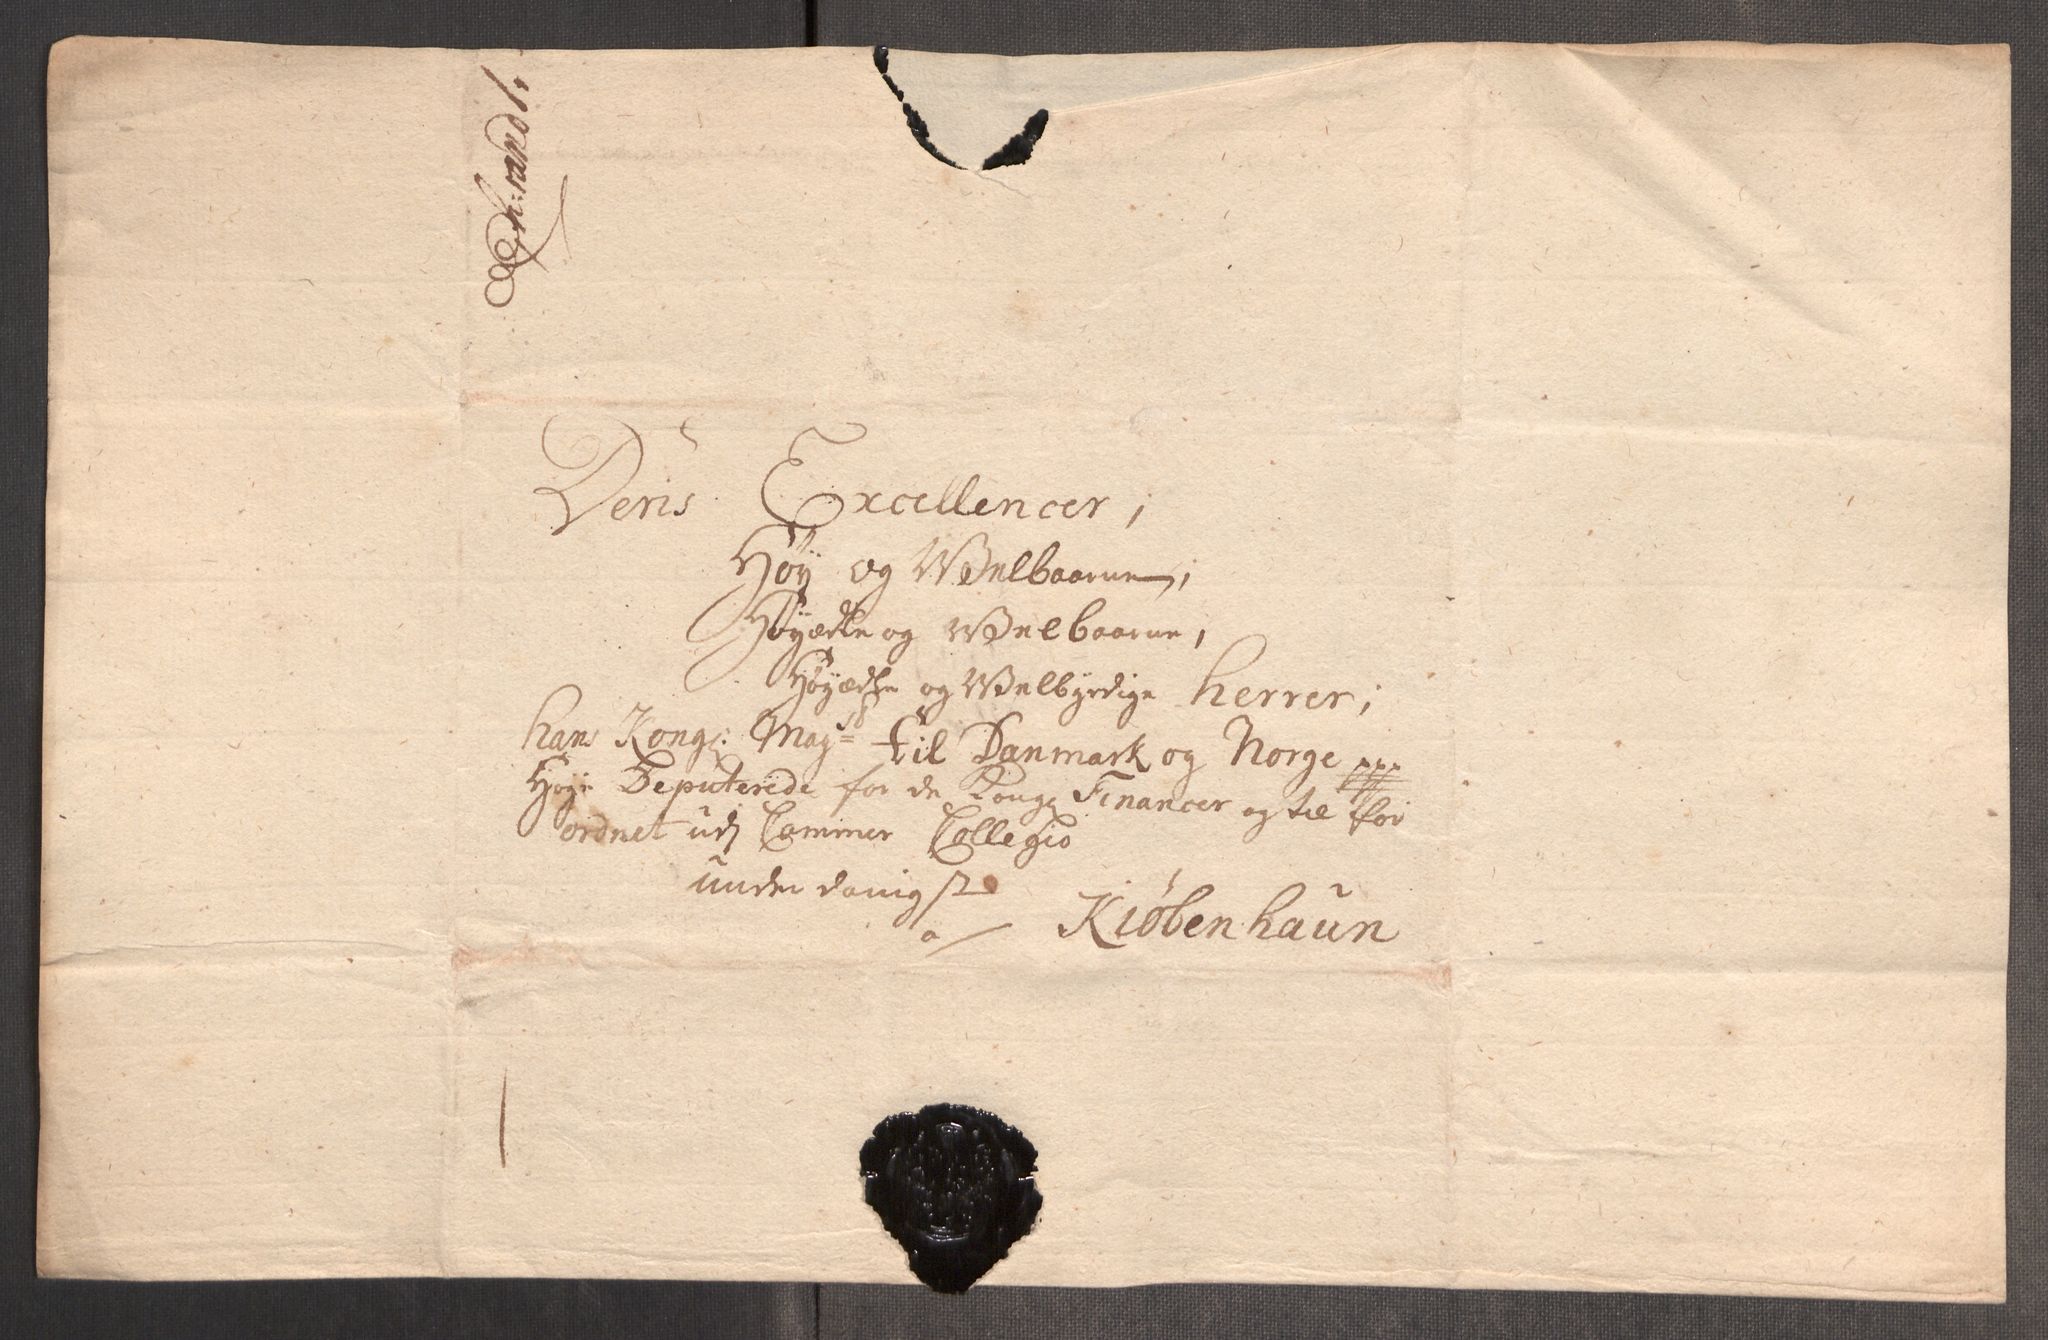 Deris Excellencer,
Höÿ og Welbaarne,
Höÿædle og Welbaarne,
Höÿædle og Welbyrdige herrer,
hans Kongl: May:ts til Danmark og Norge ppp
Höye Deputerede for de Kongl Financer og til for
ordnet udj Cammer Collegio
underdanigst
a Kiöbenhaun